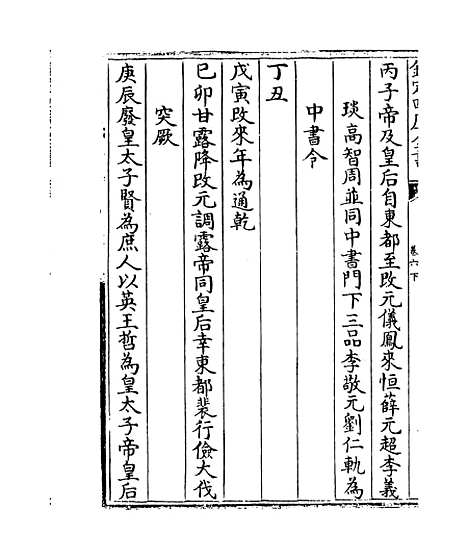 欽定四庫全書
卷六下
丙子帝及皇后自東都至改元儀鳳來恒薛元超李義
琰高智周並同中書門下三品李敬元劉仁軌為
中書令
丁丑
戊寅改來年為通乾
己卯甘露降改元調露帝同皇后幸東都裴行儉大伐
突厥
庚辰廢皇太子賢為庶人以英王哲為皇太子帝皇后